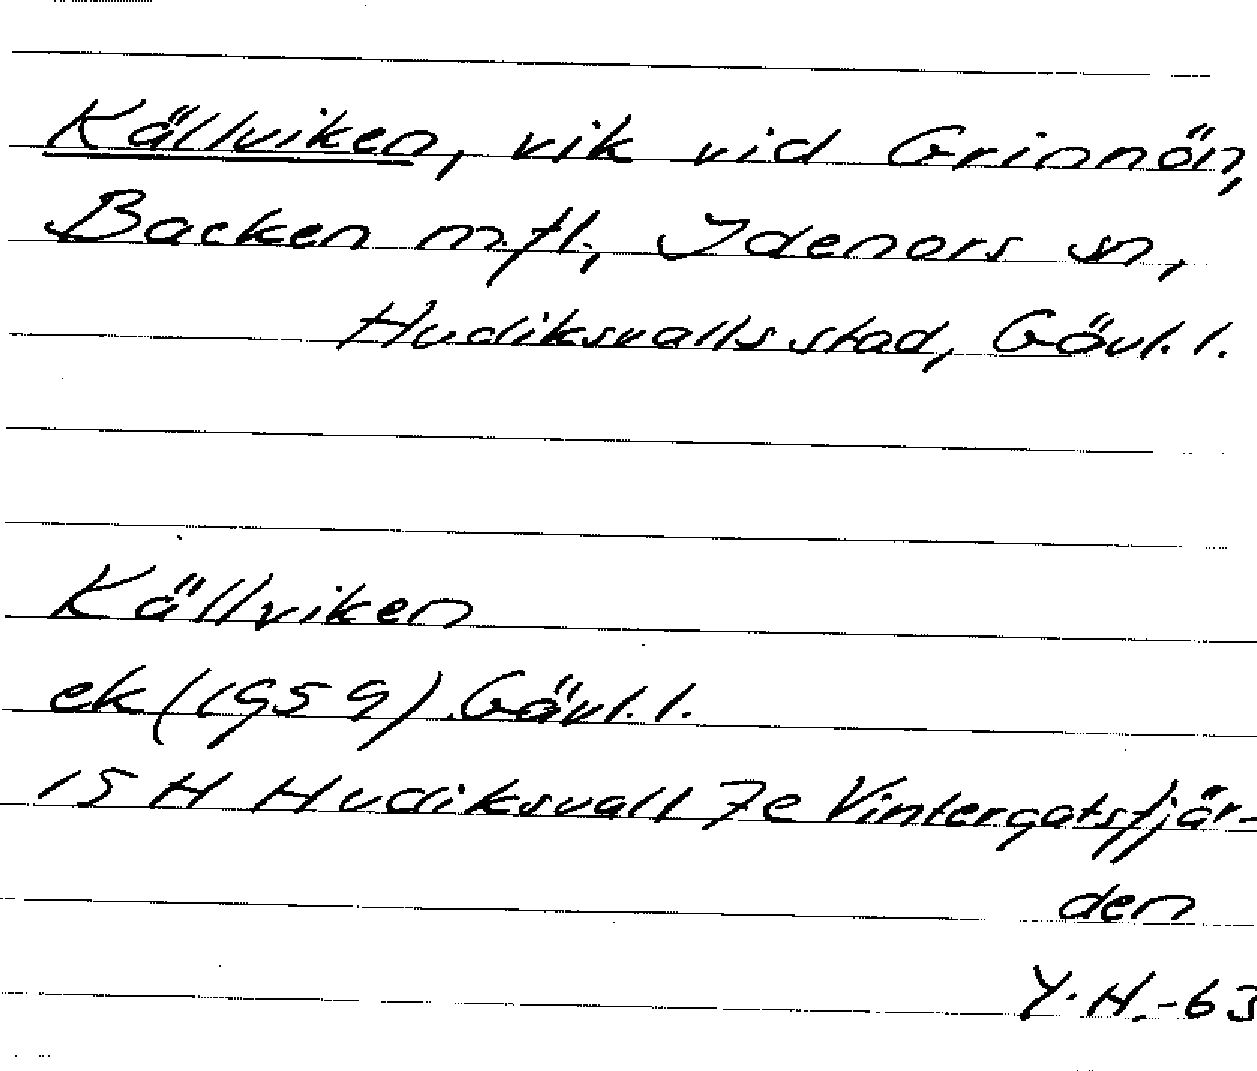 Källviken, vik vid Grinnön,
Backen m.fl., Idenors sn,
Hudiksvalls stad, Gävl. l.
Källviken
ek (1959) Gävl. l.
15 H Hudiksvall 7e Vintergatsfjär-
den
Y.H.-63